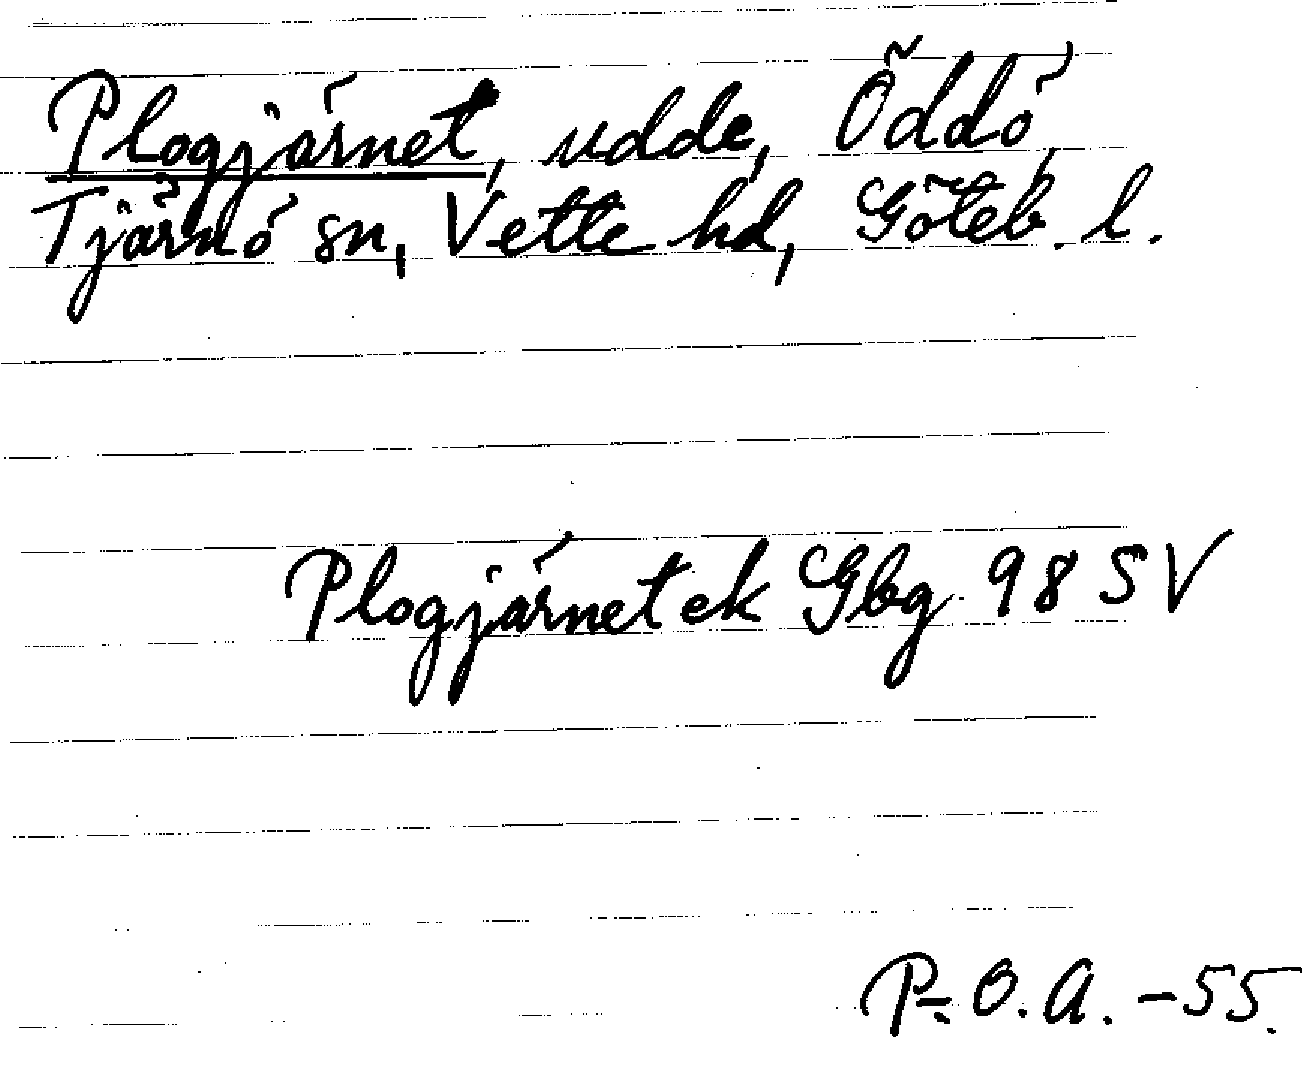 Plogjärnet, udde, Öddö,
Tjärnö sn, Vette hd, Göteb. l.
Plogjärnet ek Gbg 98 SV
P-O.A. -55.